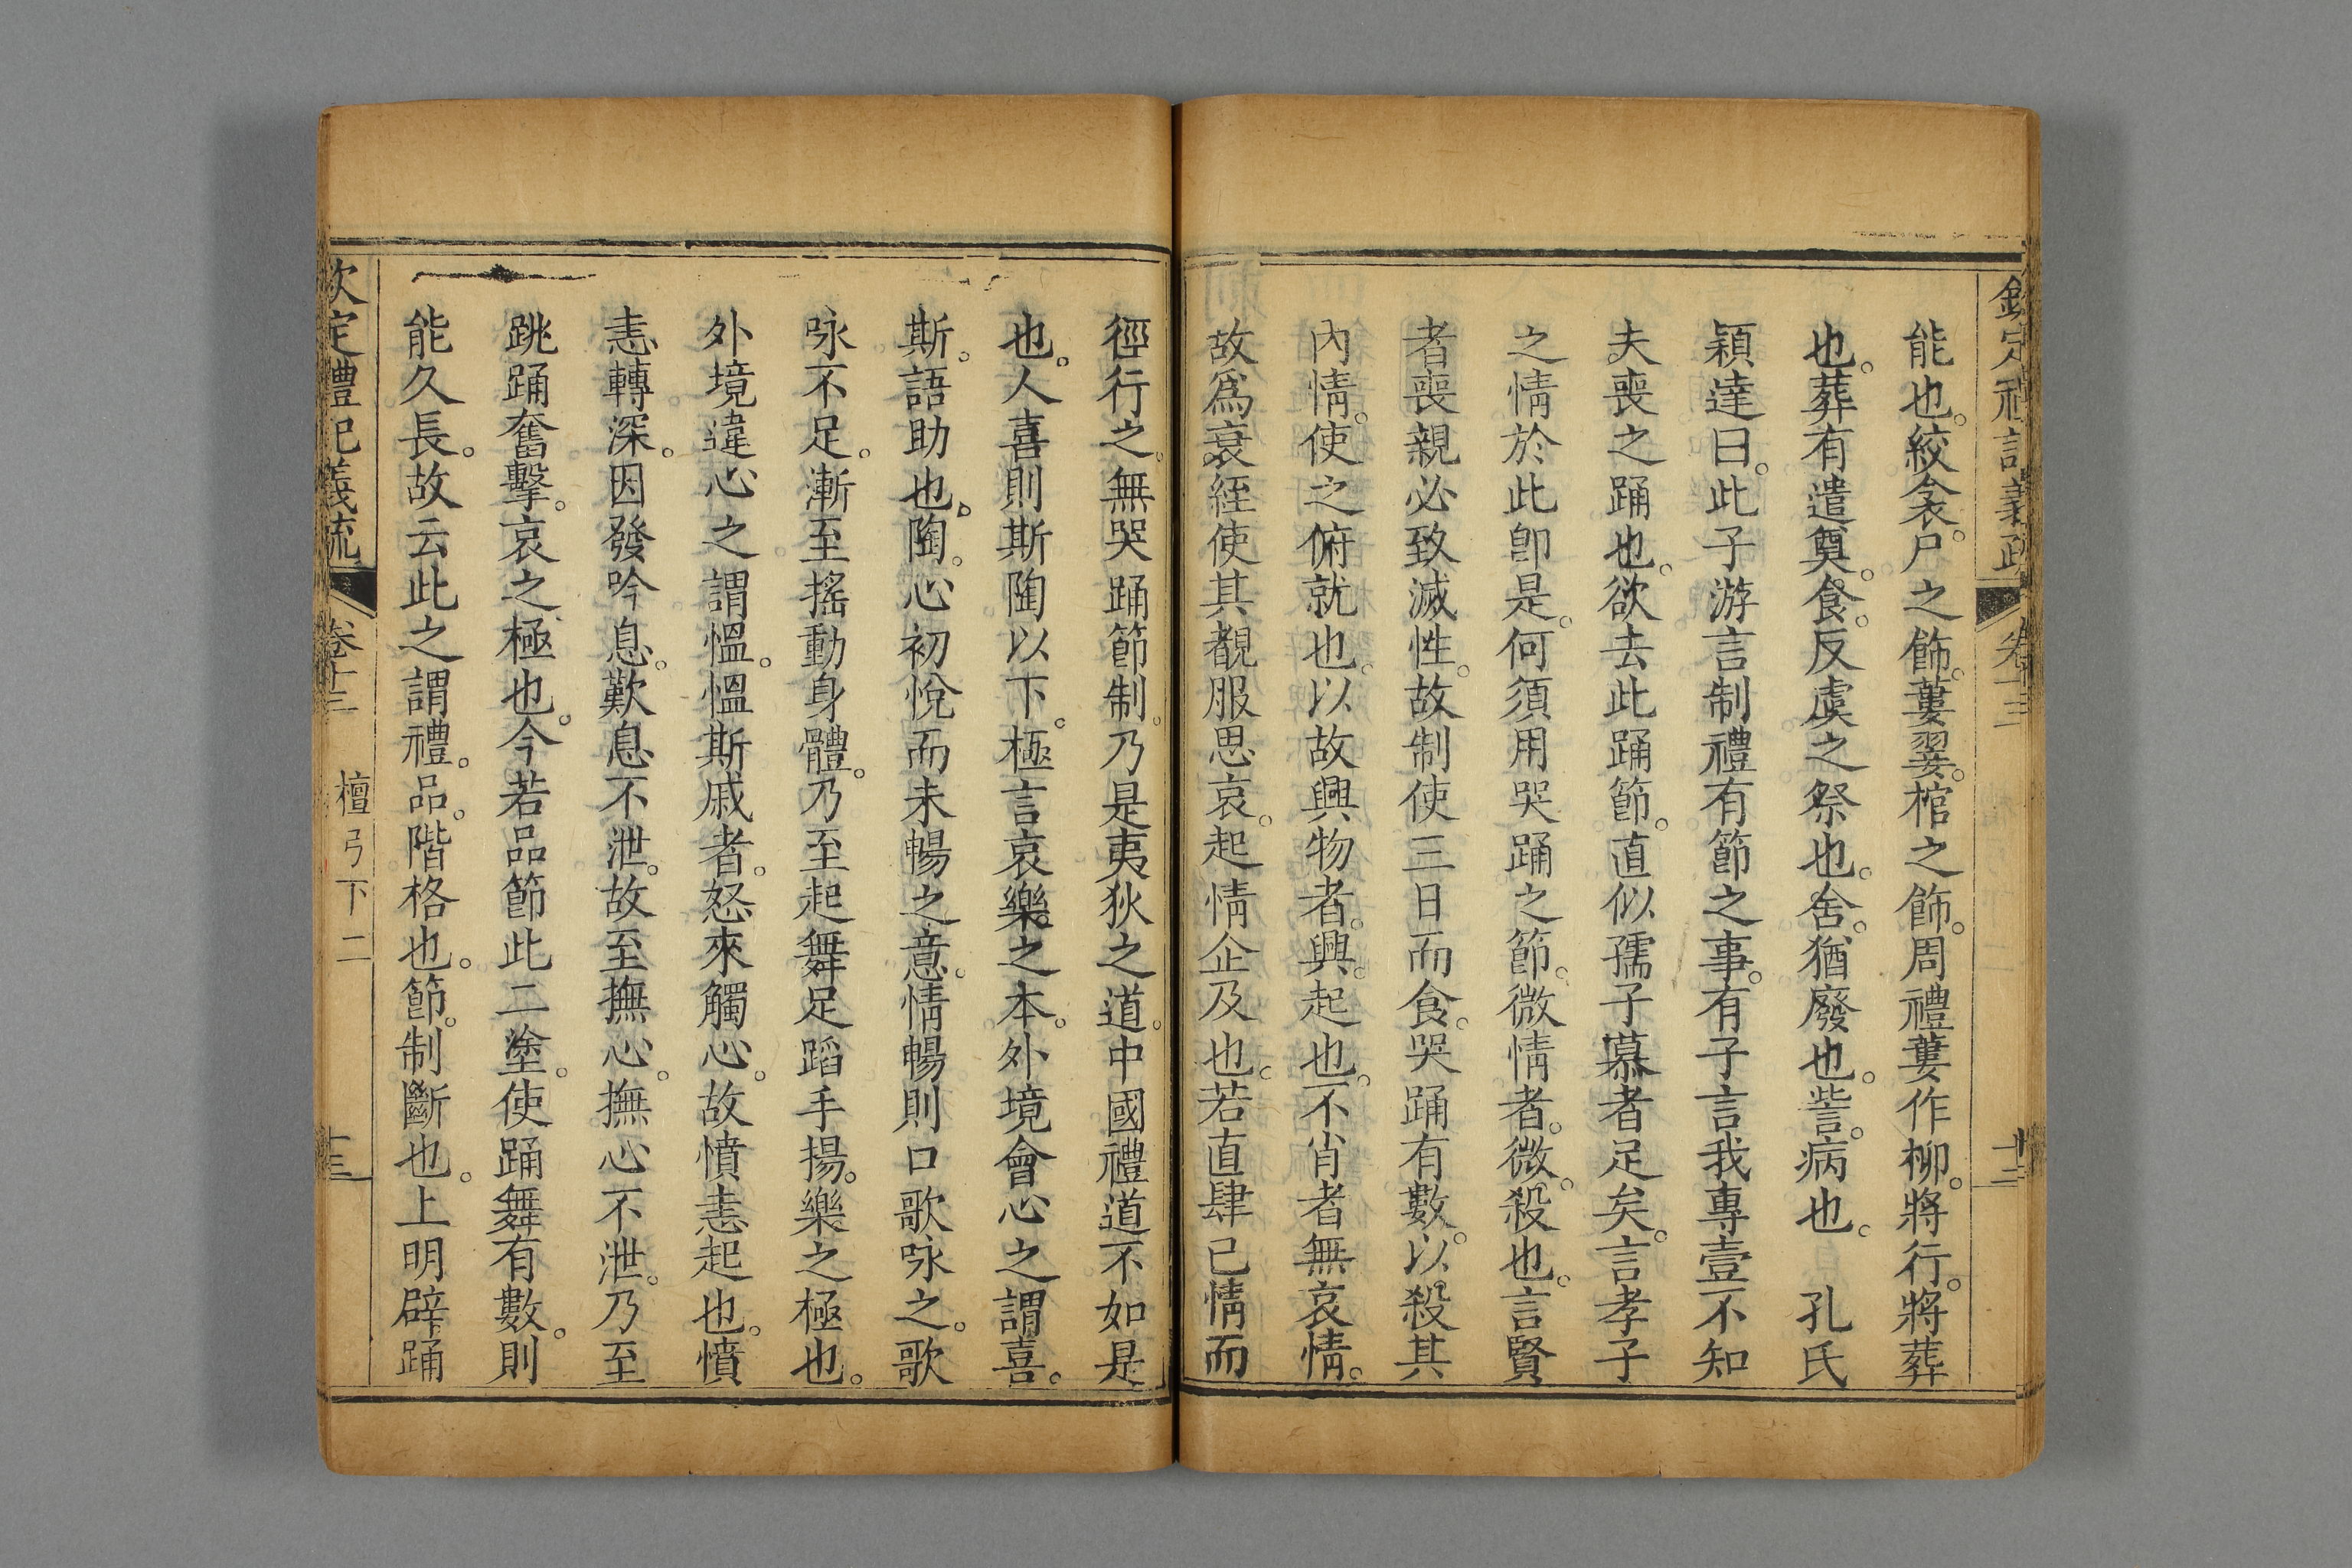 欽定禮記義疏 卷十三 十二
能也。絞衾。尸之飾。蔞翣。棺之飾。周禮蔞作柳。將行。將葬
也。葬有遣奠。食。反虞之祭也。舍。猶廢也。訾。病也。 孔氏
穎達曰。此子游言制禮有節之事。有子言我專壹不知
夫喪之踊也。欲去此踊節。直似孺子慕者足矣。言孝子
之情於此卽是。何須用哭踊之節。微情者。微。殺也。言賢
者喪親必致滅性。故制使三日而食。哭踊有數。以殺其
內情。使之俯就也。以故興物者。興。起也。不肖者無哀情。
故爲衰絰使其覩服思哀。起情企及也。若直肆己情而
徑行之。無哭踊節制。乃是夷狄之道。中國禮道不如是
也。人喜則斯陶以下。極言哀樂之本。外境會心之謂喜。
斯。語助也。陶。心初悅而未暢之意。情暢則口歌咏之。歌
咏不足。漸至搖動身體。乃至起舞足蹈手揚。樂之極也。
外境違心之謂慍。慍斯戚者。怒來觸心。故憤恚起也。憤
恚轉深。因發吟息。歎息不泄。故至撫心。撫心不泄。乃至
跳踊奮擊。哀之極也。今若品節此二塗。使踊舞有數。則
能久長。故云此之謂禮。品。階格也。節。制斷也。上明辟踊
欽定禮記義疏 卷十三 檀弓下二 十三